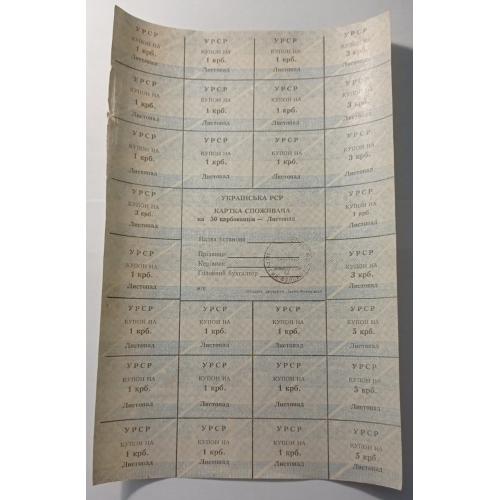 УРСР УРСР УРСР УРСР
КУПОН НА КУПОН НА КУПОН НА КУПОН НА
1 крб. 1 крб. 1 крб. 3 крб.
Листопад Листопад Листопад Листопад
УРСР УРСР УРСР УРСР
КУПОН НА КУПОН НА КУПОН НА КУПОН НА
1 крб. 1 крб. 1 крб. 3 крб.
Листопад Листопад Листопад Листопад
УРСР УРСР УРСР УРСР
КУПОН НА КУПОН НА КУПОН НА КУПОН НА
1 крб. 1 крб. 1 крб. 3 крб.
Листопад Листопад Листопад Листопад
УРСР
КУПОН НА
3 крб.
Листопад
УКРАЇНСЬКА РСР
КАРТКА СПОЖИВАЧА
на 50 карбованців — Листопад
Назва установи
Прізвище
Керівник
Головний бухгалтер
М/П
УРСР
КУПОН НА
1 крб.
Листопад
УРСР
КУПОН НА
1 крб.
Листопад
УРСР
КУПОН НА
3 крб.
Листопад
УРСР УРСР УРСР УРСР
КУПОН НА КУПОН НА КУПОН НА КУПОН НА
1 крб. 1 крб. 1 крб. 5 крб.
Листопад Листопад Листопад Листопад
УРСР УРСР УРСР УРСР
КУПОН НА КУПОН НА КУПОН НА КУПОН НА
1 крб. 1 крб. 1 крб. 5 крб.
Листопад Листопад Листопад Листопад
УРСР УРСР УРСР УРСР
КУПОН НА КУПОН НА КУПОН НА КУПОН НА
1 крб. 1 крб. 1 крб. 5 крб.
Листопад Листопад Листопад Листопад